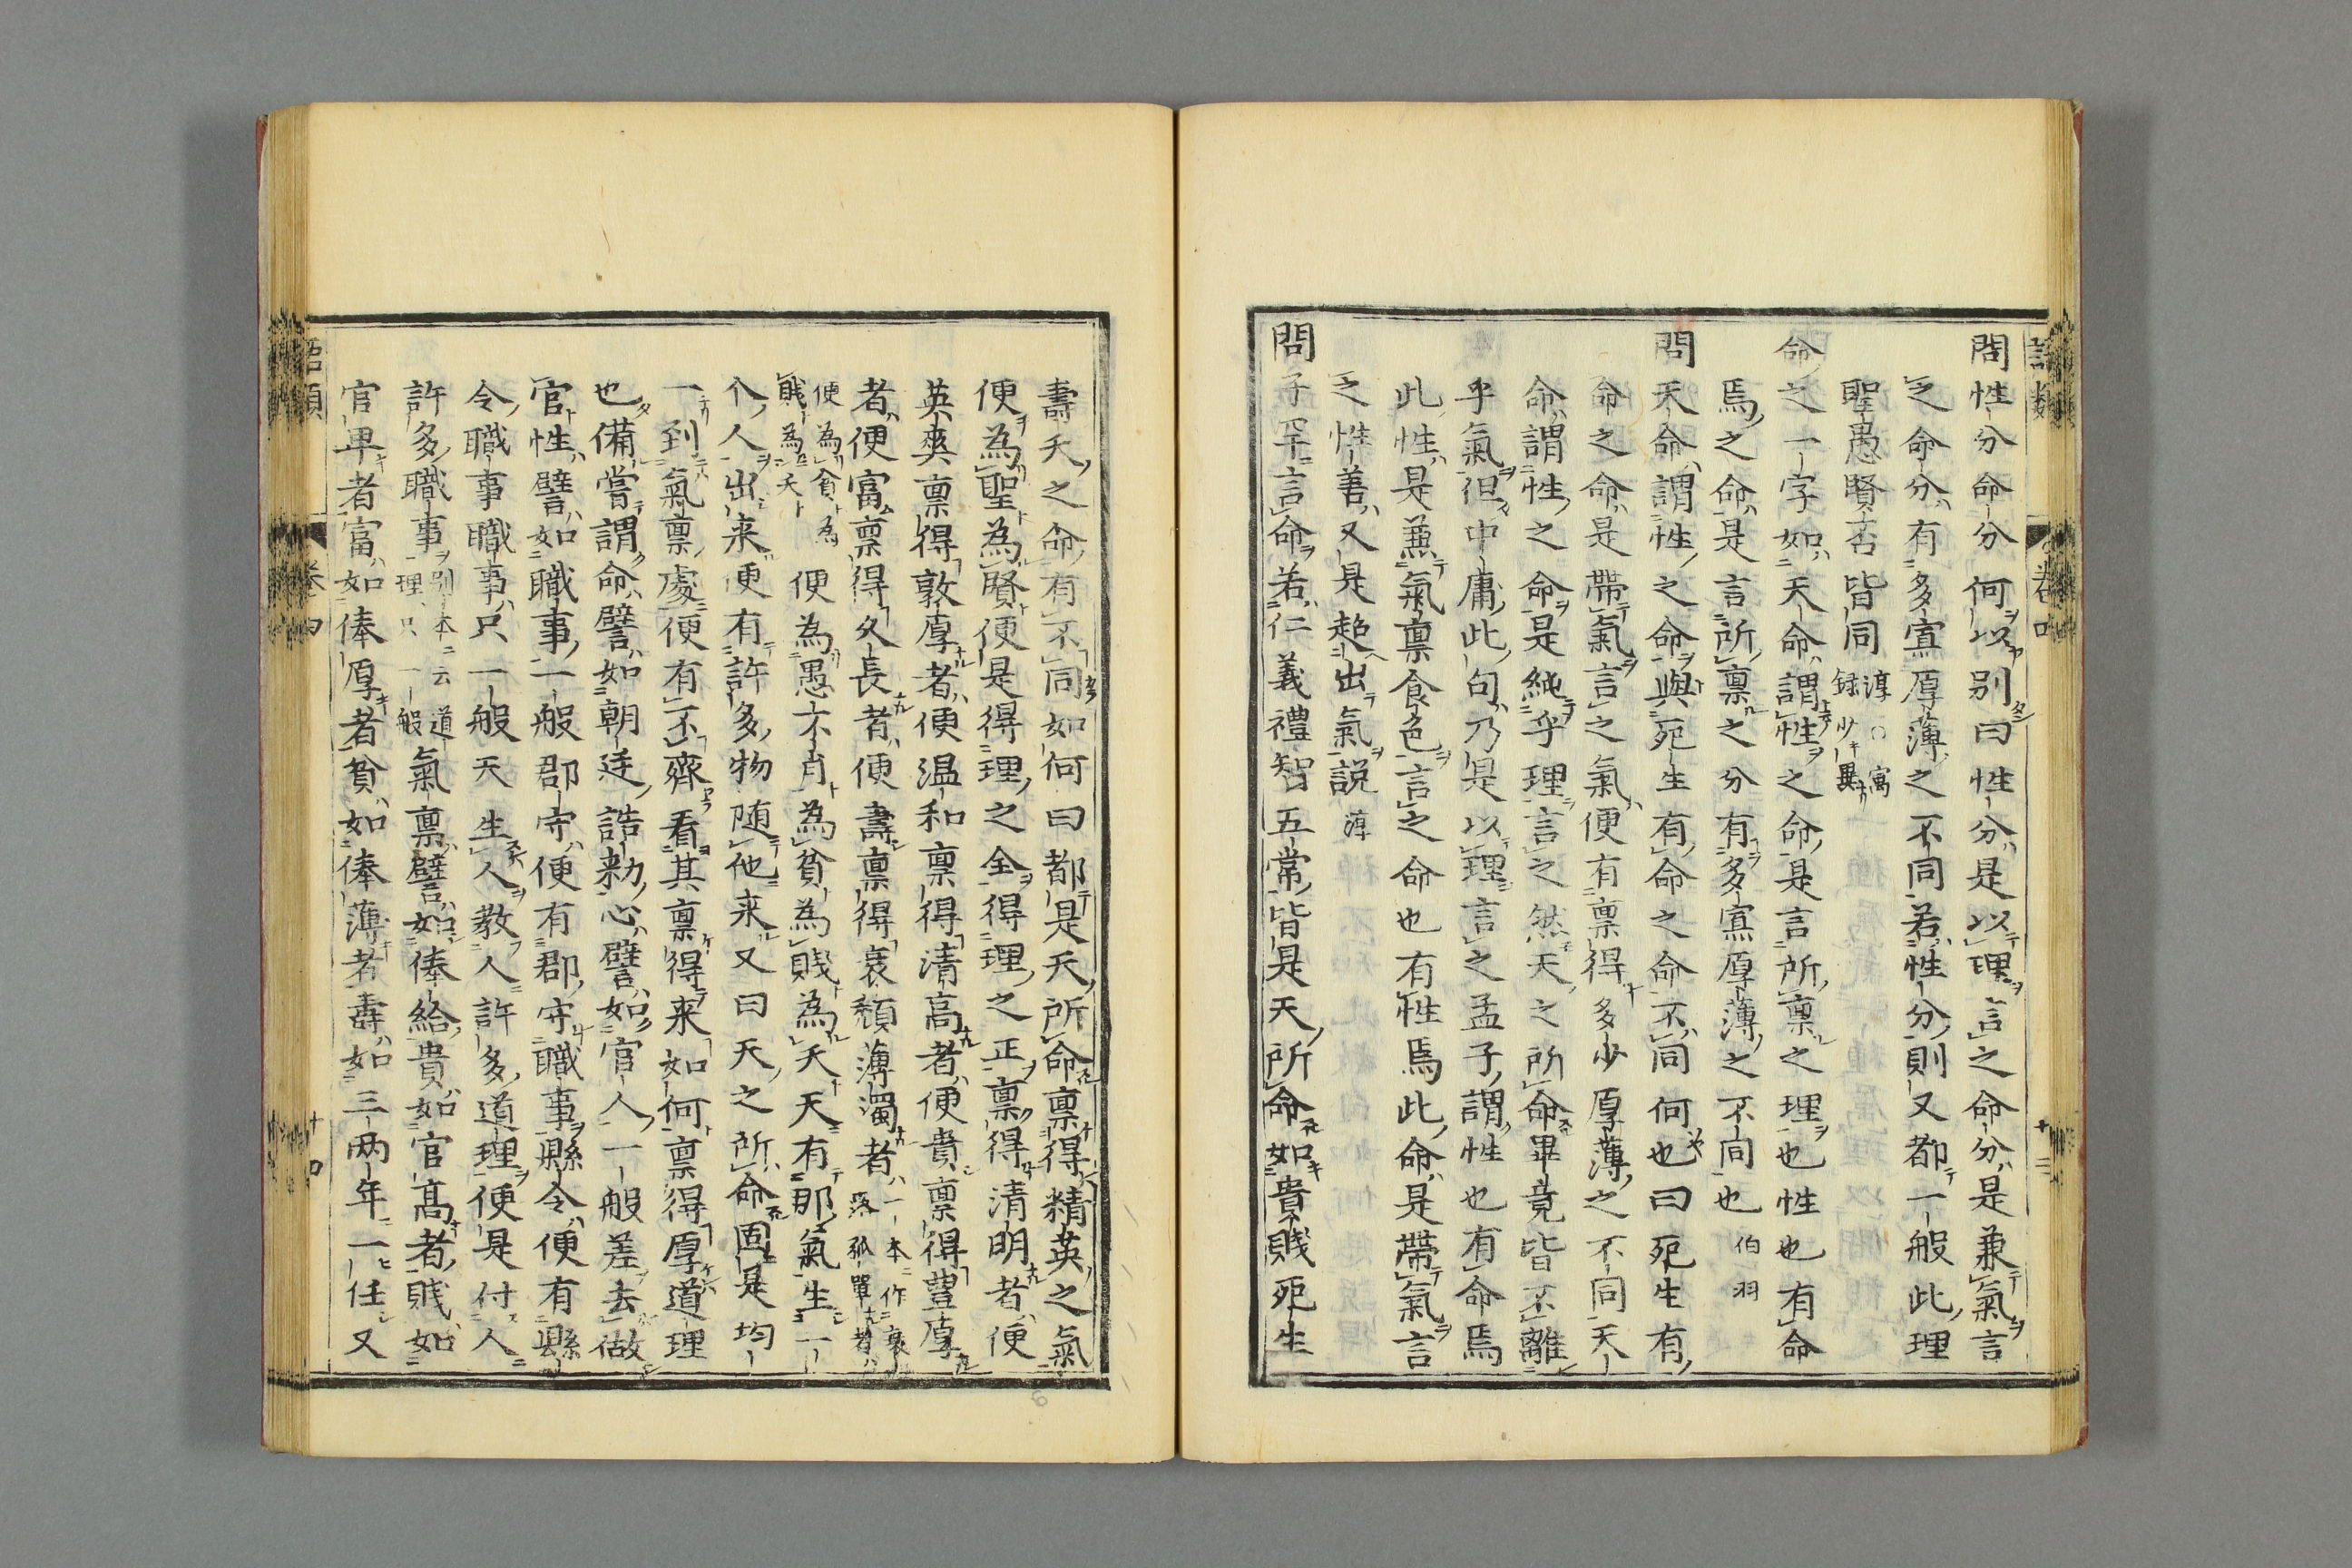 語類
卷四
十三
問性分命分何以別曰性分是以理言之命分是兼氣言
之命分有多寡厚薄之不同若性分則又都一般此理
聖愚賢否皆同淳○㝢録少異
命之一字如天命謂性之命是言所稟之理也性也有命
焉之命是言所稟之分有多寡厚薄之不同也伯羽
問天命謂性之命與死生有命之命不同何也曰死生有
命之命是帶氣言之氣便有稟得多少厚薄之不同天
命謂性之命是純乎理言之然天之所命畢竟皆不離
乎氣但中庸此句乃是以理言之孟子謂性也有命焉
此性是兼氣稟食色言之命也有性焉此命是帶氣言
之性善又是超出氣說淳
問子罕言命若仁義禮智五常皆是天所命如貴賤死生
壽夭之命有不同如何曰都是天所命稟得精英之氣
便為聖為賢便是得理之全得理之正稟得清明者便
英爽稟得敦厚者便温和稟得清高者便貴稟得豊厚
者便富稟得久長者便壽稟得衰頹薄濁者一本作衰落孤單者
便為貪為賎為夭便為愚不肖為貧為賤為夭天有那氣生一
个人出来便有許多物随他来又曰天之所命固是均
一到氣稟處便有不齊看其稟得来如何稟得厚道理
也備嘗謂命譬如朝廷誥勑心譬如官人一般差去做
官性譬如職事一般郡守便有郡守職事縣令便有縣
令職事職事只一般天生人教人許多道理便是付人
許多職事別本云道理只一般氣稟譬如俸給貴如官髙者賤如
官卑者富如俸厚者貧如俸薄者壽如三两年一任又
語類
卷四
十四